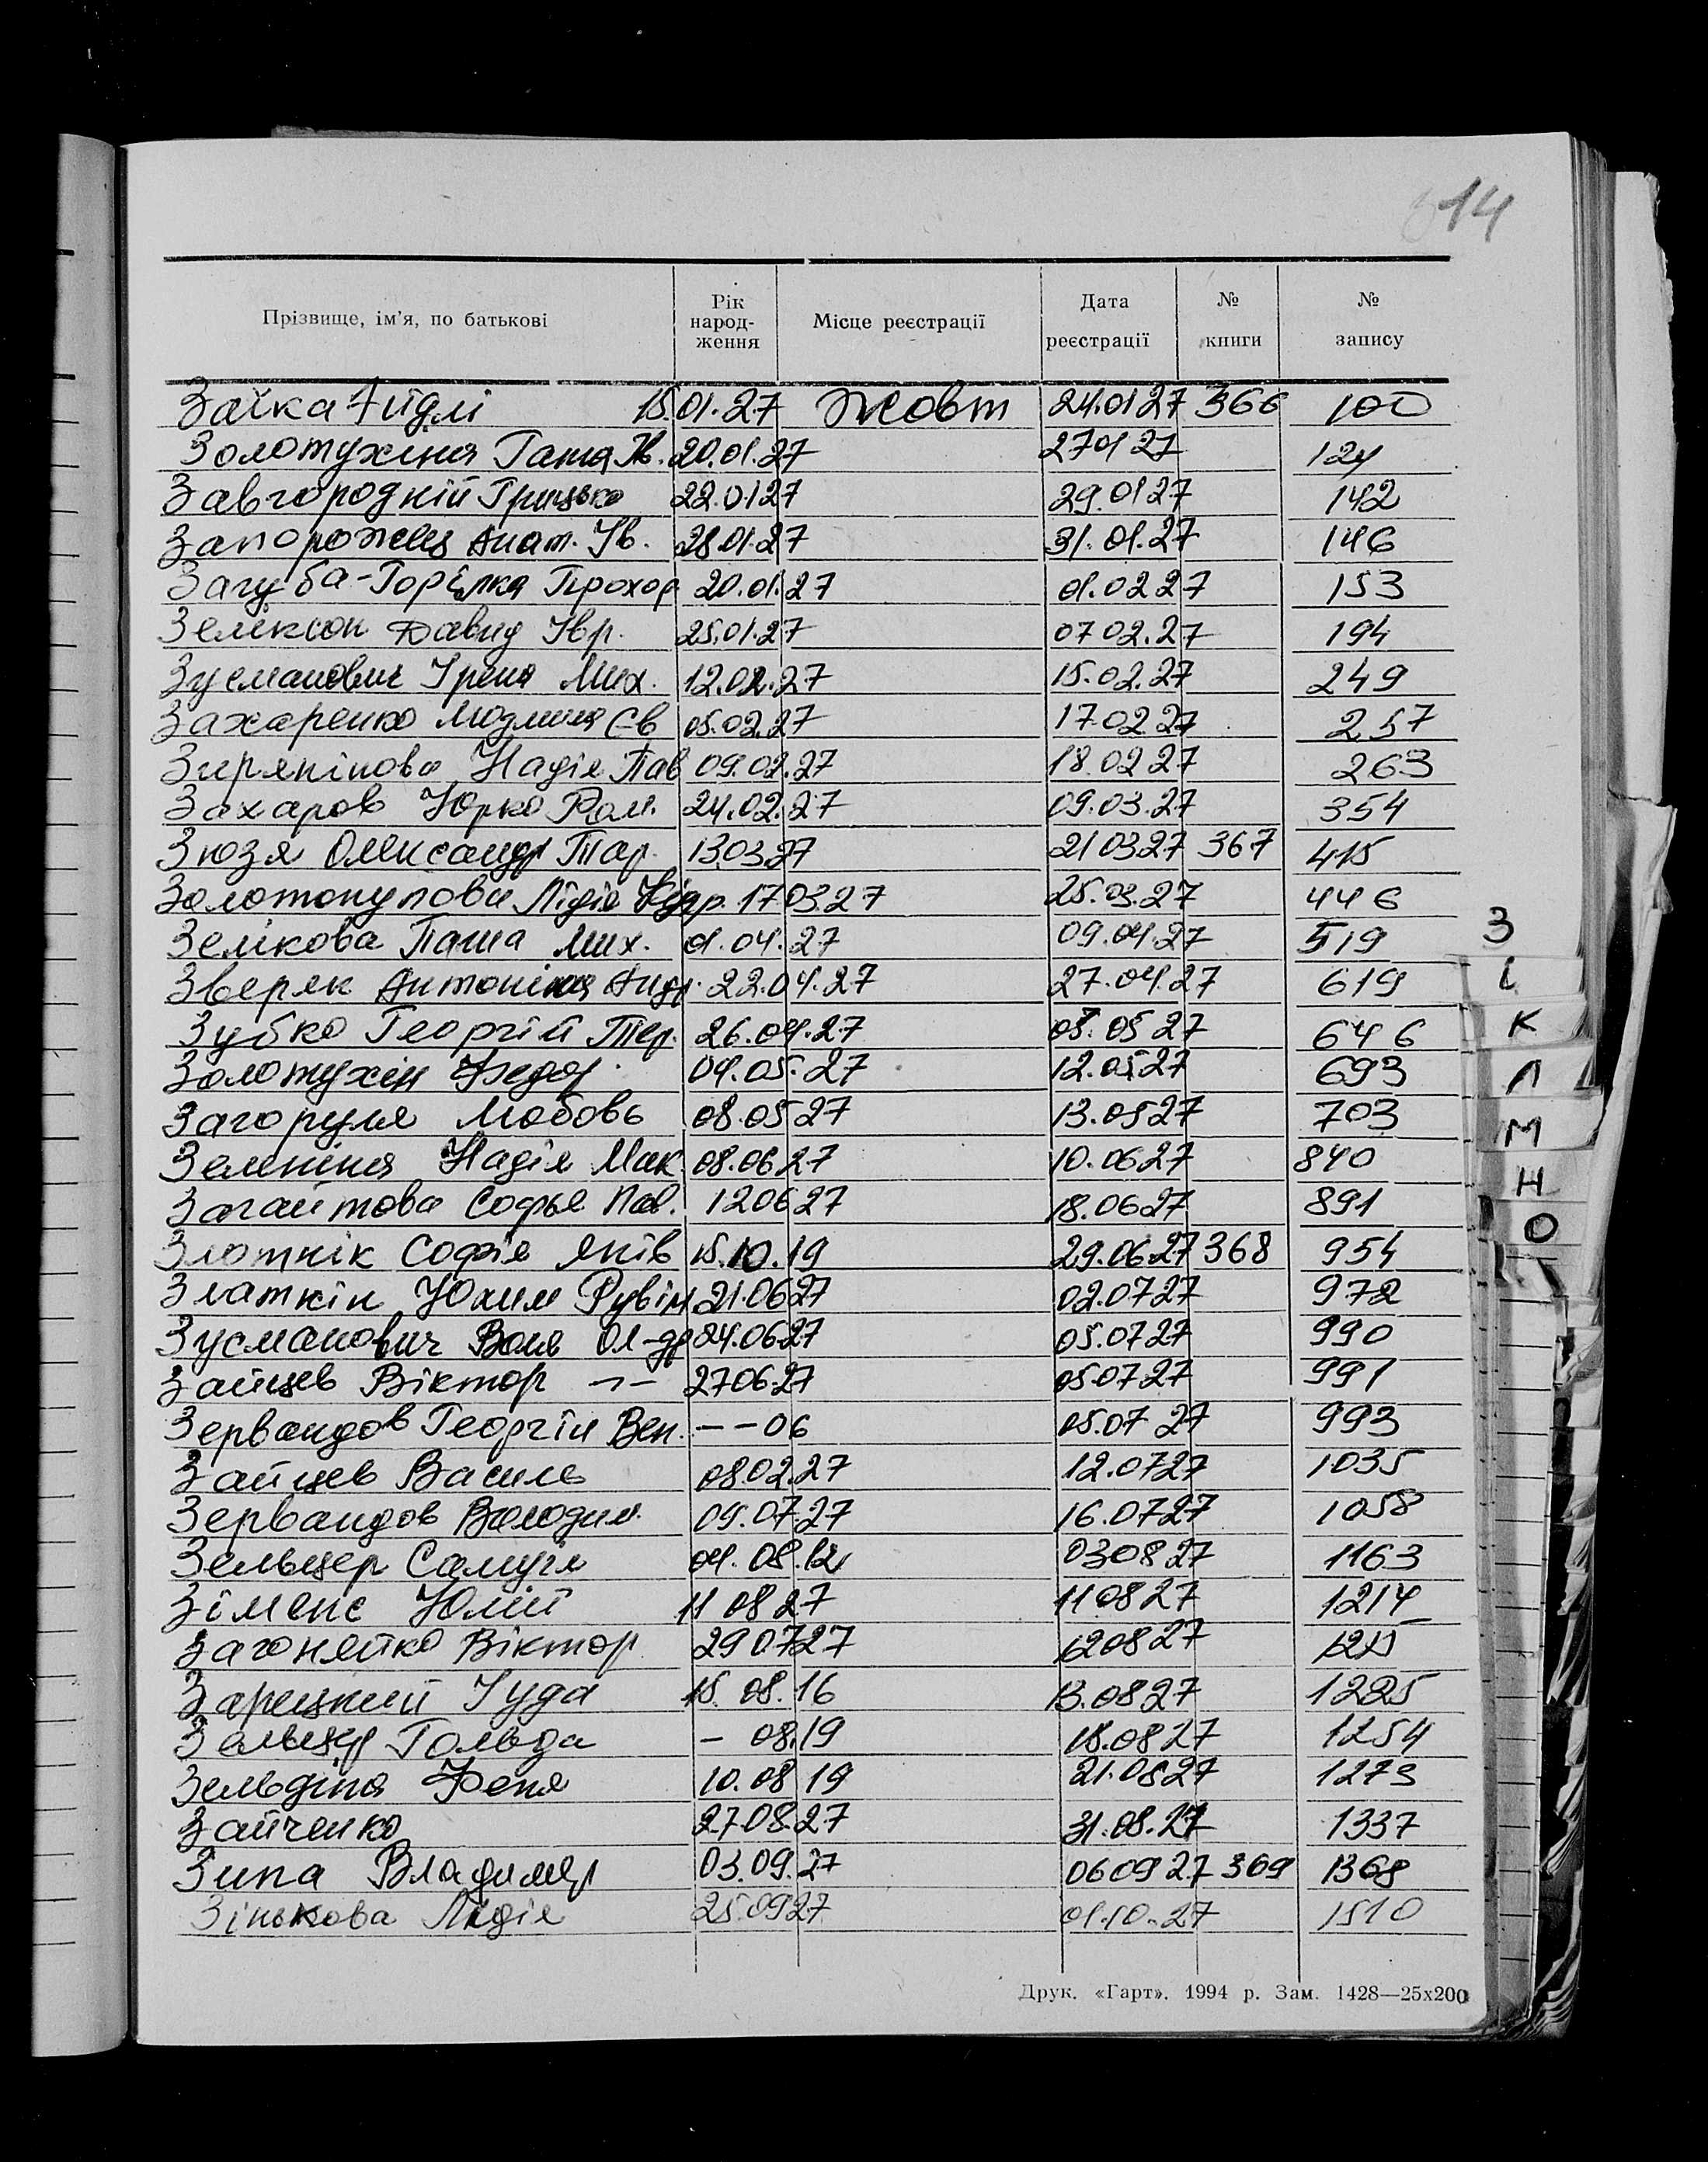 14
Прізвище, ім'я, по батькові Рік народ-ження Місце реєстрації Дата реєстрації № книги № запису
Заїка 15.01.27 Жовт 24.01 27 366 100
Золотухіна Ів. 20.01.27 27 01 27 124
Завгородній Грицько 22.01 27 29.01 27 142
Запорожец Анат. Ів. 28.01.27 31.01.27 146
Загуба-Горілка Прохор 20.01.27 01.02 27 153
Зеліксон Давид Івр. 25.01.27 07 02.27 194
Зусманович Ірена Мих. 12.02.27 15.02.27 249
Захаренко Людмила Єв 05.02.27 17.02.27 257
Зирянінова Надія Пав 09.02.27 18.02 27 263
Захаров Юрко Ром. 24.02.27 09.03.27 354
Зюзя Олександр Тар. 13.03.27 21 03 27 367 415
Золотопупова Лідія 17 03.27 25.03.27 446
Зелікова Паша Мих. 01.04.27 09.04.27 519
Зверяк Антоніна Андр. 22.04.27 27.04.27 619
Зубко Георгій Тер. 26.04.27 05 27 646
Золотухін Федор 09.05.27 12.05 27 693
Загоруля Любовь 08.05 27 13.05 27 703
Земніна Надія Мак. 08.06 27 10.06 27 840
Загайтова Софья Пав. 12 06 27 18.06 27 891
Злотнік Софія Яків 15.10.19 29.06.27 368 954
Златкін Юхим Рувім 21.06 27 02.07 27 972
Зусманович Воля Ол-др 24.06.27 05.07 27 990
Зайцев Віктор -"- 27 06 27 05.07 27 991
Зервандов Георгій Вен. - - 06 05.07 27 993
Зайцев Василь 08.02.27 12.07 27 1035
Зервандов Володим. 09.07.27 16.07 27 1058
Зельцер Самуїл 08.12 03 08 27 1163
Зіменс Юлій 11 08 27 11 08 27 1214
Загоняйко Віктор 29 07 27 12 08 27 1215
Зарицкий Іуда 15.08.16 13.08 27 1225
Зельцер Гольда - 08.19 18.08 27 1254
Зельдіна Феня 10.08 19 21.08 27 1273
Зайченко 27.08.27 31.08.27 1337
Зипа Владимир 03.09.27 06 09 27 369 1368
Зінькова Лідія 25.09 27 01.10.27 1510
З
І
К
Л
М
Н
О
Друк. «Гарт». 1994 р. Зам. 1428—25х200